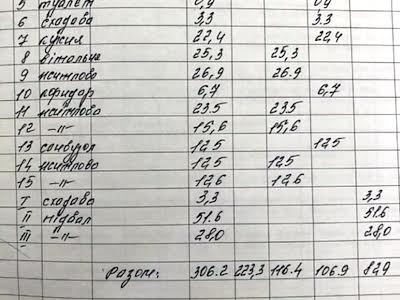 5 туалет 0,9 0,9
6 сходова 3,3 3.3
7 кухня 22,4 22,4
8 вітальня 25,3 25,3
9 житлова 26,9 26.9
10 коридор 6,7 6,7
11 житлова 23.5 23.5
12 -"- 15,6 15,6
13 санвузол 12.5 12.5
14 житлова 12.5 12.5
15 -"- 12.6 12.6
I сходова 3,3 3.3
II підвал 51.6 51.6
III -"- 28,0 28.0
Разом: 306.2 223,3 116.4 106.9 82.9